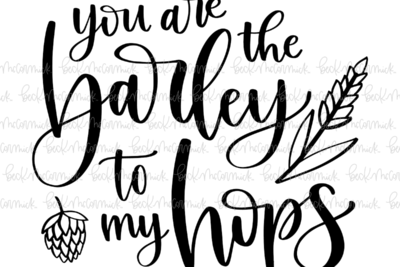 you are
the
barley
to
my hops